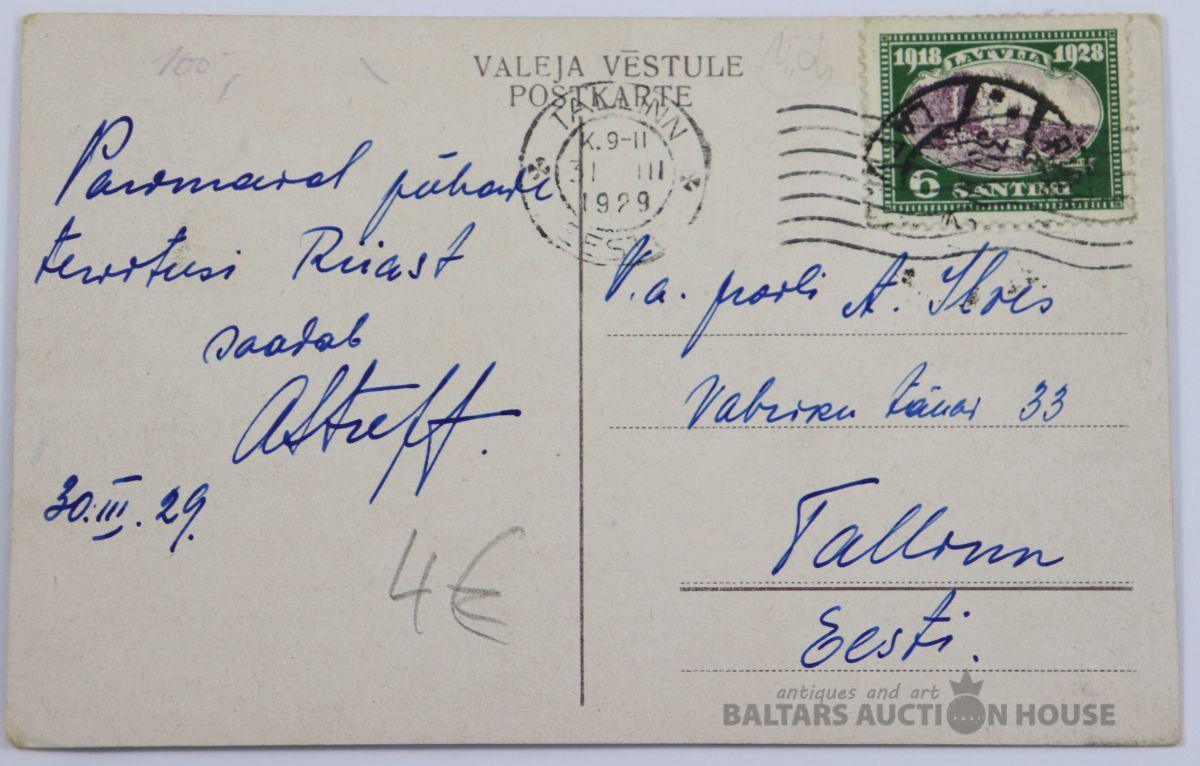 100
VALEJA VĒSTULE
POSTKARTE
1918 LATVIJA 1928
6 SANTIMI
TALLINN
K. 9-11
31 III
1929
EESTI
Paremaid pühade
tervitusi Riiast
saadab
30.III.29.
4€
V.a. prouli A. Ilves
Vabriku tänav 33
Tallinn
Eesti.
antiques and art
BALTARS AUCTION HOUSE